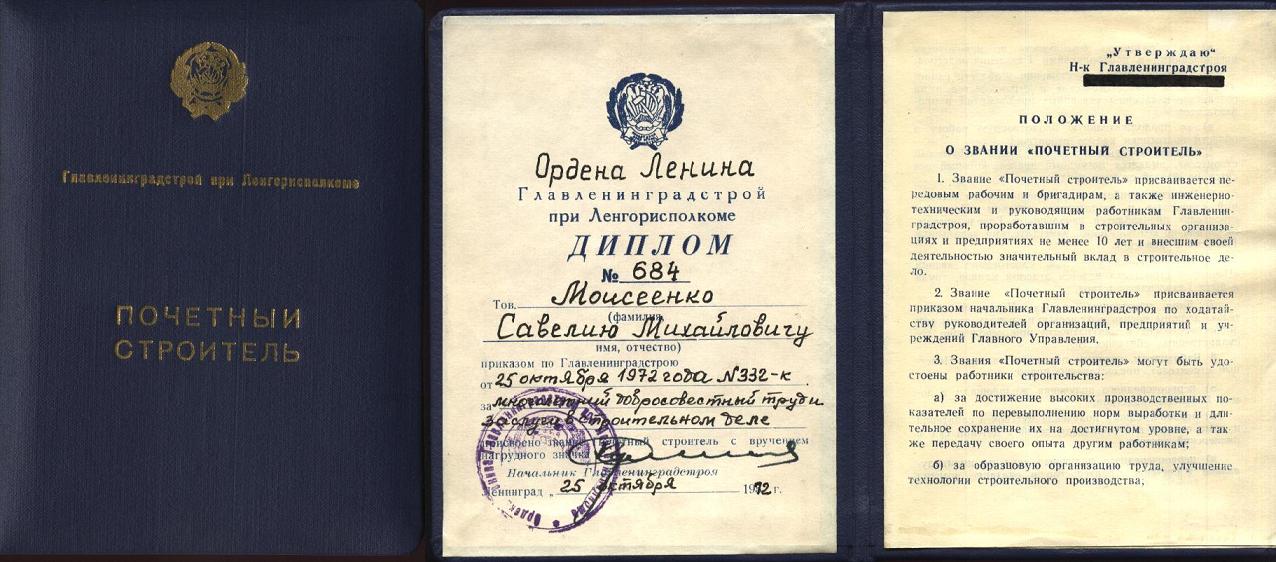 Главленинградстрой при Ленгорисполкоме
ПОЧЕТНЫЙ
СТРОИТЕЛЬ
Ордена Ленина
Главленинградстрой
при Ленгорисполкоме
ДИПЛОМ
№ 684
Тов. Моисеенко
(фамилия,
Савелию Михайловичу
имя, отчество)
приказом по Главленинградстрою
от 25 октября 1972 года N332-к
за многолетний добросовестный труд и
заслуги в строительном деле
присвоено звание Почетный строитель с вручением
нагрудного значка
Начальник Главленинградстроя
Ленинград „ 25 октября 1972 г.
„Утверждаю“
Н-к Главленинградстроя
ПОЛОЖЕНИЕ
О ЗВАНИИ «ПОЧЕТНЫЙ СТРОИТЕЛЬ»
1. Звание «Почетный строитель» присваивается пе-
редовым рабочим и бригадирам, а также инженерно-
техническим и руководящим работникам Главленин-
градстроя, проработавшим в строительных организа-
циях и предприятиях не менее 10 лет и внесшим своей
деятельностью значительный вклад в строительное де-
ло.
2. Звание «Почетный строитель» присваивается
приказом начальника Главленинградстроя по ходатай-
ству руководителей организаций, предприятий и уч-
реждений Главного Управления.
3. Звания «Почетный строитель» могут быть удо-
стоены работники строительства:
а) за достижение высоких производственных по-
казателей по перевыполнению норм выработки и дли-
тельное сохранение их на достигнутом уровне, а так
же передачу своего опыта другим работникам;
б) за образцовую организацию труда, улучшение
технологии строительного производства;